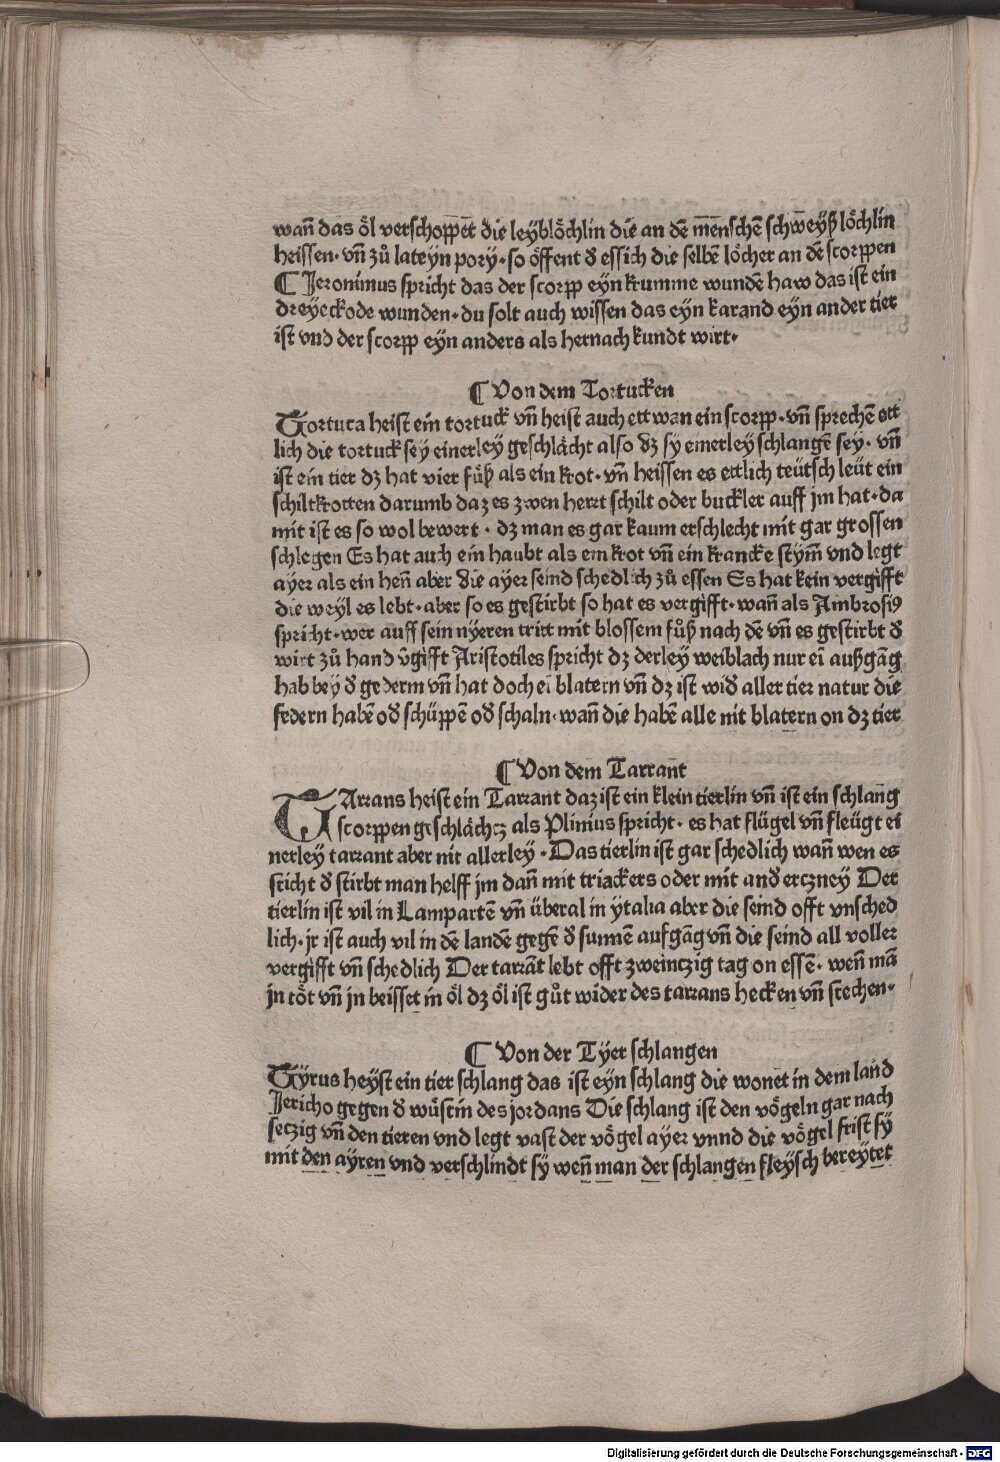 wañ das öl verschoppet die leyblöchlin die an dē mēnschē schweyß löchlin
heissen· vñ zů lateyn pory· so öffent d̕ essich die selbē löcher an dē scorppen
¶ Jeronimus spricht das der scorpp eyn krumme wundē haw das ist ein
dreyeckode wunden· du solt auch wissen das eyn karand eyn ander tier
ist vnd der scorpp eyn anders als hernach kundt wirt·
¶ Von dem Tortucken
Tortuca heist ein tortuck vñ heist auch ettwan ein scorpp· vñ sprechē ett
lich die tortuck sey einerley geschlächt also dz sy einerley schlangē sey· vñ
ist ein tier dz hat vier fůß als ein krot· vñ heissen es ettlich teütsch leüt ein
schiltkrotten darumb daz es zwen hertt schilt oder buckler auff jm hat· da
mit ist es so wol bewert· dz man es gar kaum erschlecht mit gar grossen
schlegen Es hat auch ein haubt als ein krot vñ ein krancke stym̄ vnd legt
ayer als ein heñ aber die ayer seind schedlich zů essen Es hat kein vergifft
die weyl es lebt· aber so es gestirbt so hat es vergifft· wañ als Ambrosiꝰ
spricht· wer auff sein nyeren tritt mit blossem fůß nach dē vñ es gestirbt d̕
wirt zů hand v̄gifft Aristotiles spricht dz derley weiblach nur eī außgāg
hab bey d̕ gederm vñ hat doch eī blatern vñ dz ist wid̕ aller tier natur die
federn habē od̕ schüppē od̕ schaln· wañ die habē alle nit blatern on dz tier
¶ Von dem Tarrant
TArrans heist ein Tarrant daz ist ein klein tierlin vñ ist ein schlang
scorppen geschlächtz als Plinius spricht· es hat flügel vñ fleügt ei
nerley tarrant aber nit allerley· Das tierlin ist gar schedlich wañ wen es
sticht d̕ stirbt man helff jm dañ mit triackers oder mit and̕ ertzney Der
tierlin ist vil in Lampartē vñ überal in ytalia aber die seind offt vnsched
lich· jr ist auch vil in dē landē gegē d̕ sunnē aufgāg vñ die seind all voller
vergifft vñ schedlich Der tarrāt lebt offt zweintzig tag on essē· weñ mā
jn töt vñ jn beisset in öl dz öl ist gůt wider des tarrans hecken vñ stechen·
¶ Von der Tyer schlangen
Tyrus heyst ein tier schlang das ist eyn schlang die wonet in dem land
Jericho gegen d̕ wüstin des jordans Die schlang ist den vögeln gar nach
setzig vñ den tieren vnd legt vast der vögel ayer vnnd die vögel frist sy
mit den ayren vnd verschlindt sy weñ man der schlangen fleysch bereytet
Digitalisierung gefördert durch die Deutsche Forschungsgemeinschaft - DFG